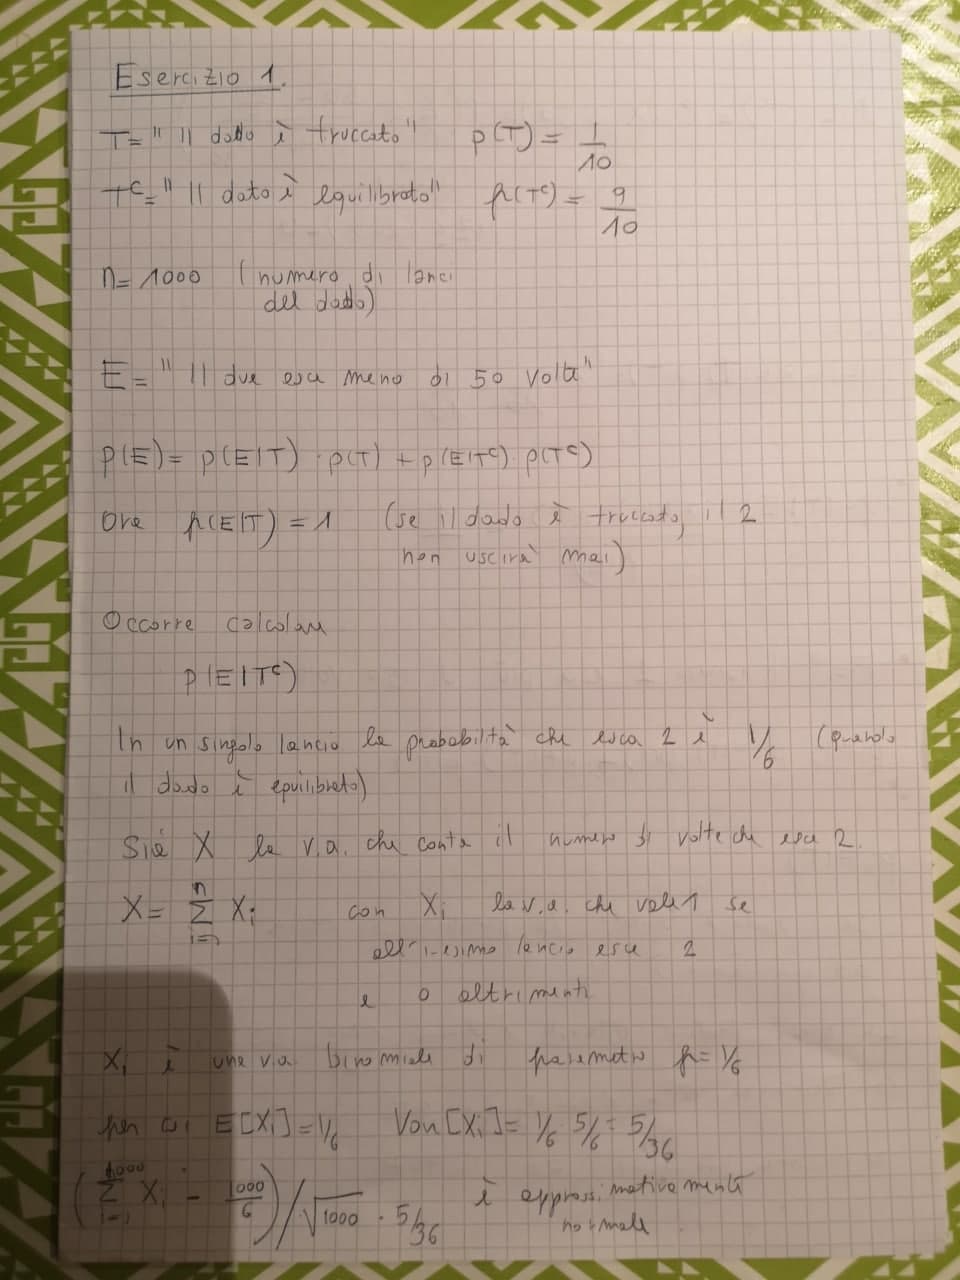 Esercizio 1.
T= " Il dado è truccato" p(T) = 1/10
T^c = " Il dato è equilibrato" p(T^c) = 9/10
n= 1000 ( numero di lanci
del dado)
E= " Il due esce meno di 50 volte"
p(E)= p(E|T) · p(T) + p(E|T^c) · p(T^c)
Ora p(E|T) = 1 (se il dado è truccato, il 2
non uscirà mai)
Occorre calcolare
p(E|T^c)
In un singolo lancio la probabilità che esca 2 è 1/6 (quando
il dado è equilibrato)
Sia X la v.a. che conta il numero di volte che esce 2.
X= ∑_{i=1}^{n} X_i con X_i la v.a. che vale 1 se
all'i-esimo lancio esce 2
e 0 altrimenti
X_i è una v.a. binomiale di parametro p= 1/6
per cui E[X_i]= 1/6 Var[X_i]= 1/6 5/6 = 5/36
(∑_{i=1}^{1000} X_i - 1000/6) / √1000 · 5/36 è approssimativamente
normale